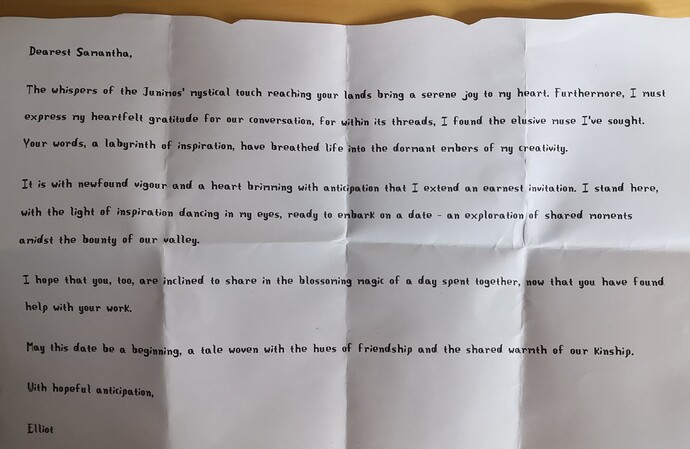 Dearest Samantha,
The whispers of the Junimos' mystical touch reaching your lands bring a serene joy to my heart. Furthermore, I must
express my heartfelt gratitude for our conversation, for within its threads, I found the elusive muse I've sought.
Your words, a labyrinth of inspiration, have breathed life into the dormant embers of my creativity.
It is with newfound vigour and a heart brimming with anticipation that I extend an earnest invitation. I stand here,
with the light of inspiration dancing in my eyes, ready to embark on a date - an exploration of shared moments
amidst the bounty of our valley.
I hope that you, too, are inclined to share in the blossoming magic of a day spent together, now that you have found
help with your work.
May this date be a beginning, a tale woven with the hues of friendship and the shared warmth of our kinship.
With hopeful anticipation,
Elliot